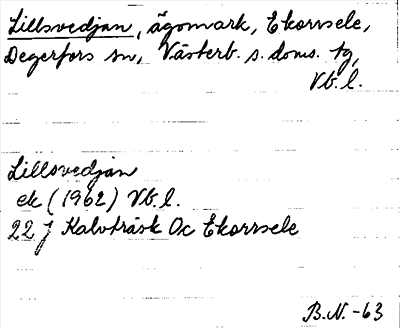 Lillsvedjan, ägomark, Ekorrsele,
Degerfors sn, Västerb. s. doms. tg,
Vb. l.
Lillsvedjan
ek (1962) Vb. l.
22 J Kalvträsk Oc Ekorrsele
B.N. -63